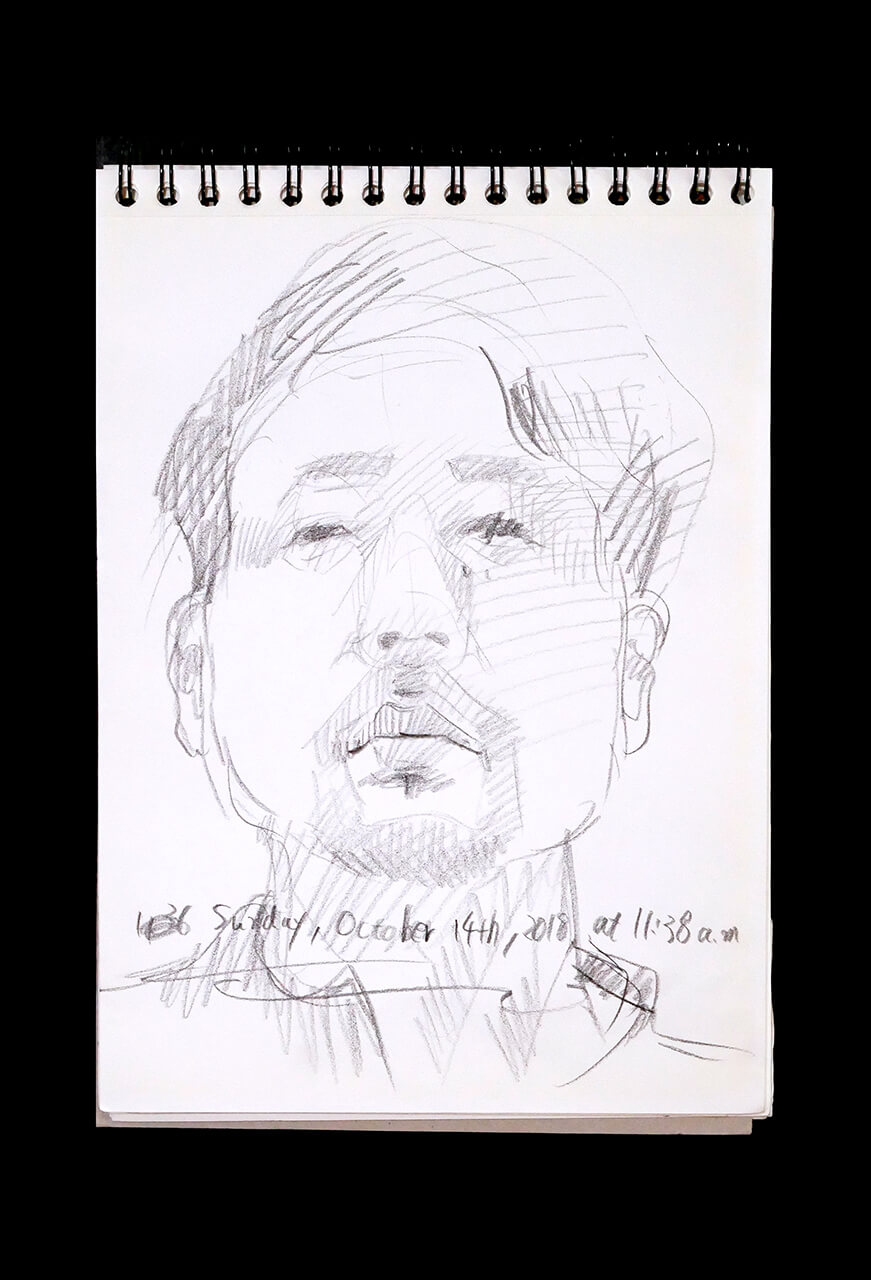 Sunday, October 14th, 2018 at 11:38 a.m